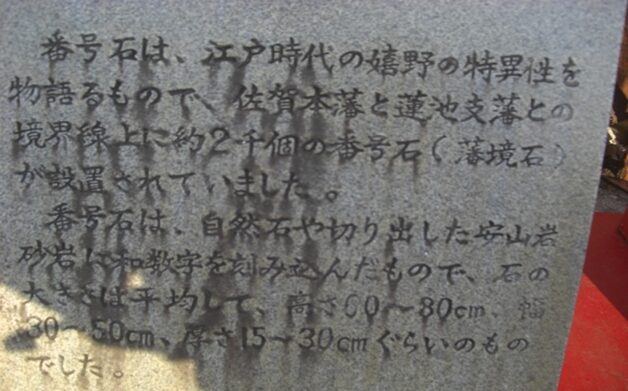 番号石は、江戸時代の嬉野の特異性を
物語るもので、佐賀本藩と蓮池支藩との
境界線上に約2千個の番号石(藩境石)
が設置されていました。
番号石は、自然石や切り出した安山岩
砂岩に和数字を刻み込んだもので、石の
大きさは平均して、高さ60〜80cm、幅
30〜50cm、厚さ15〜30cmぐらいのもの
でした。